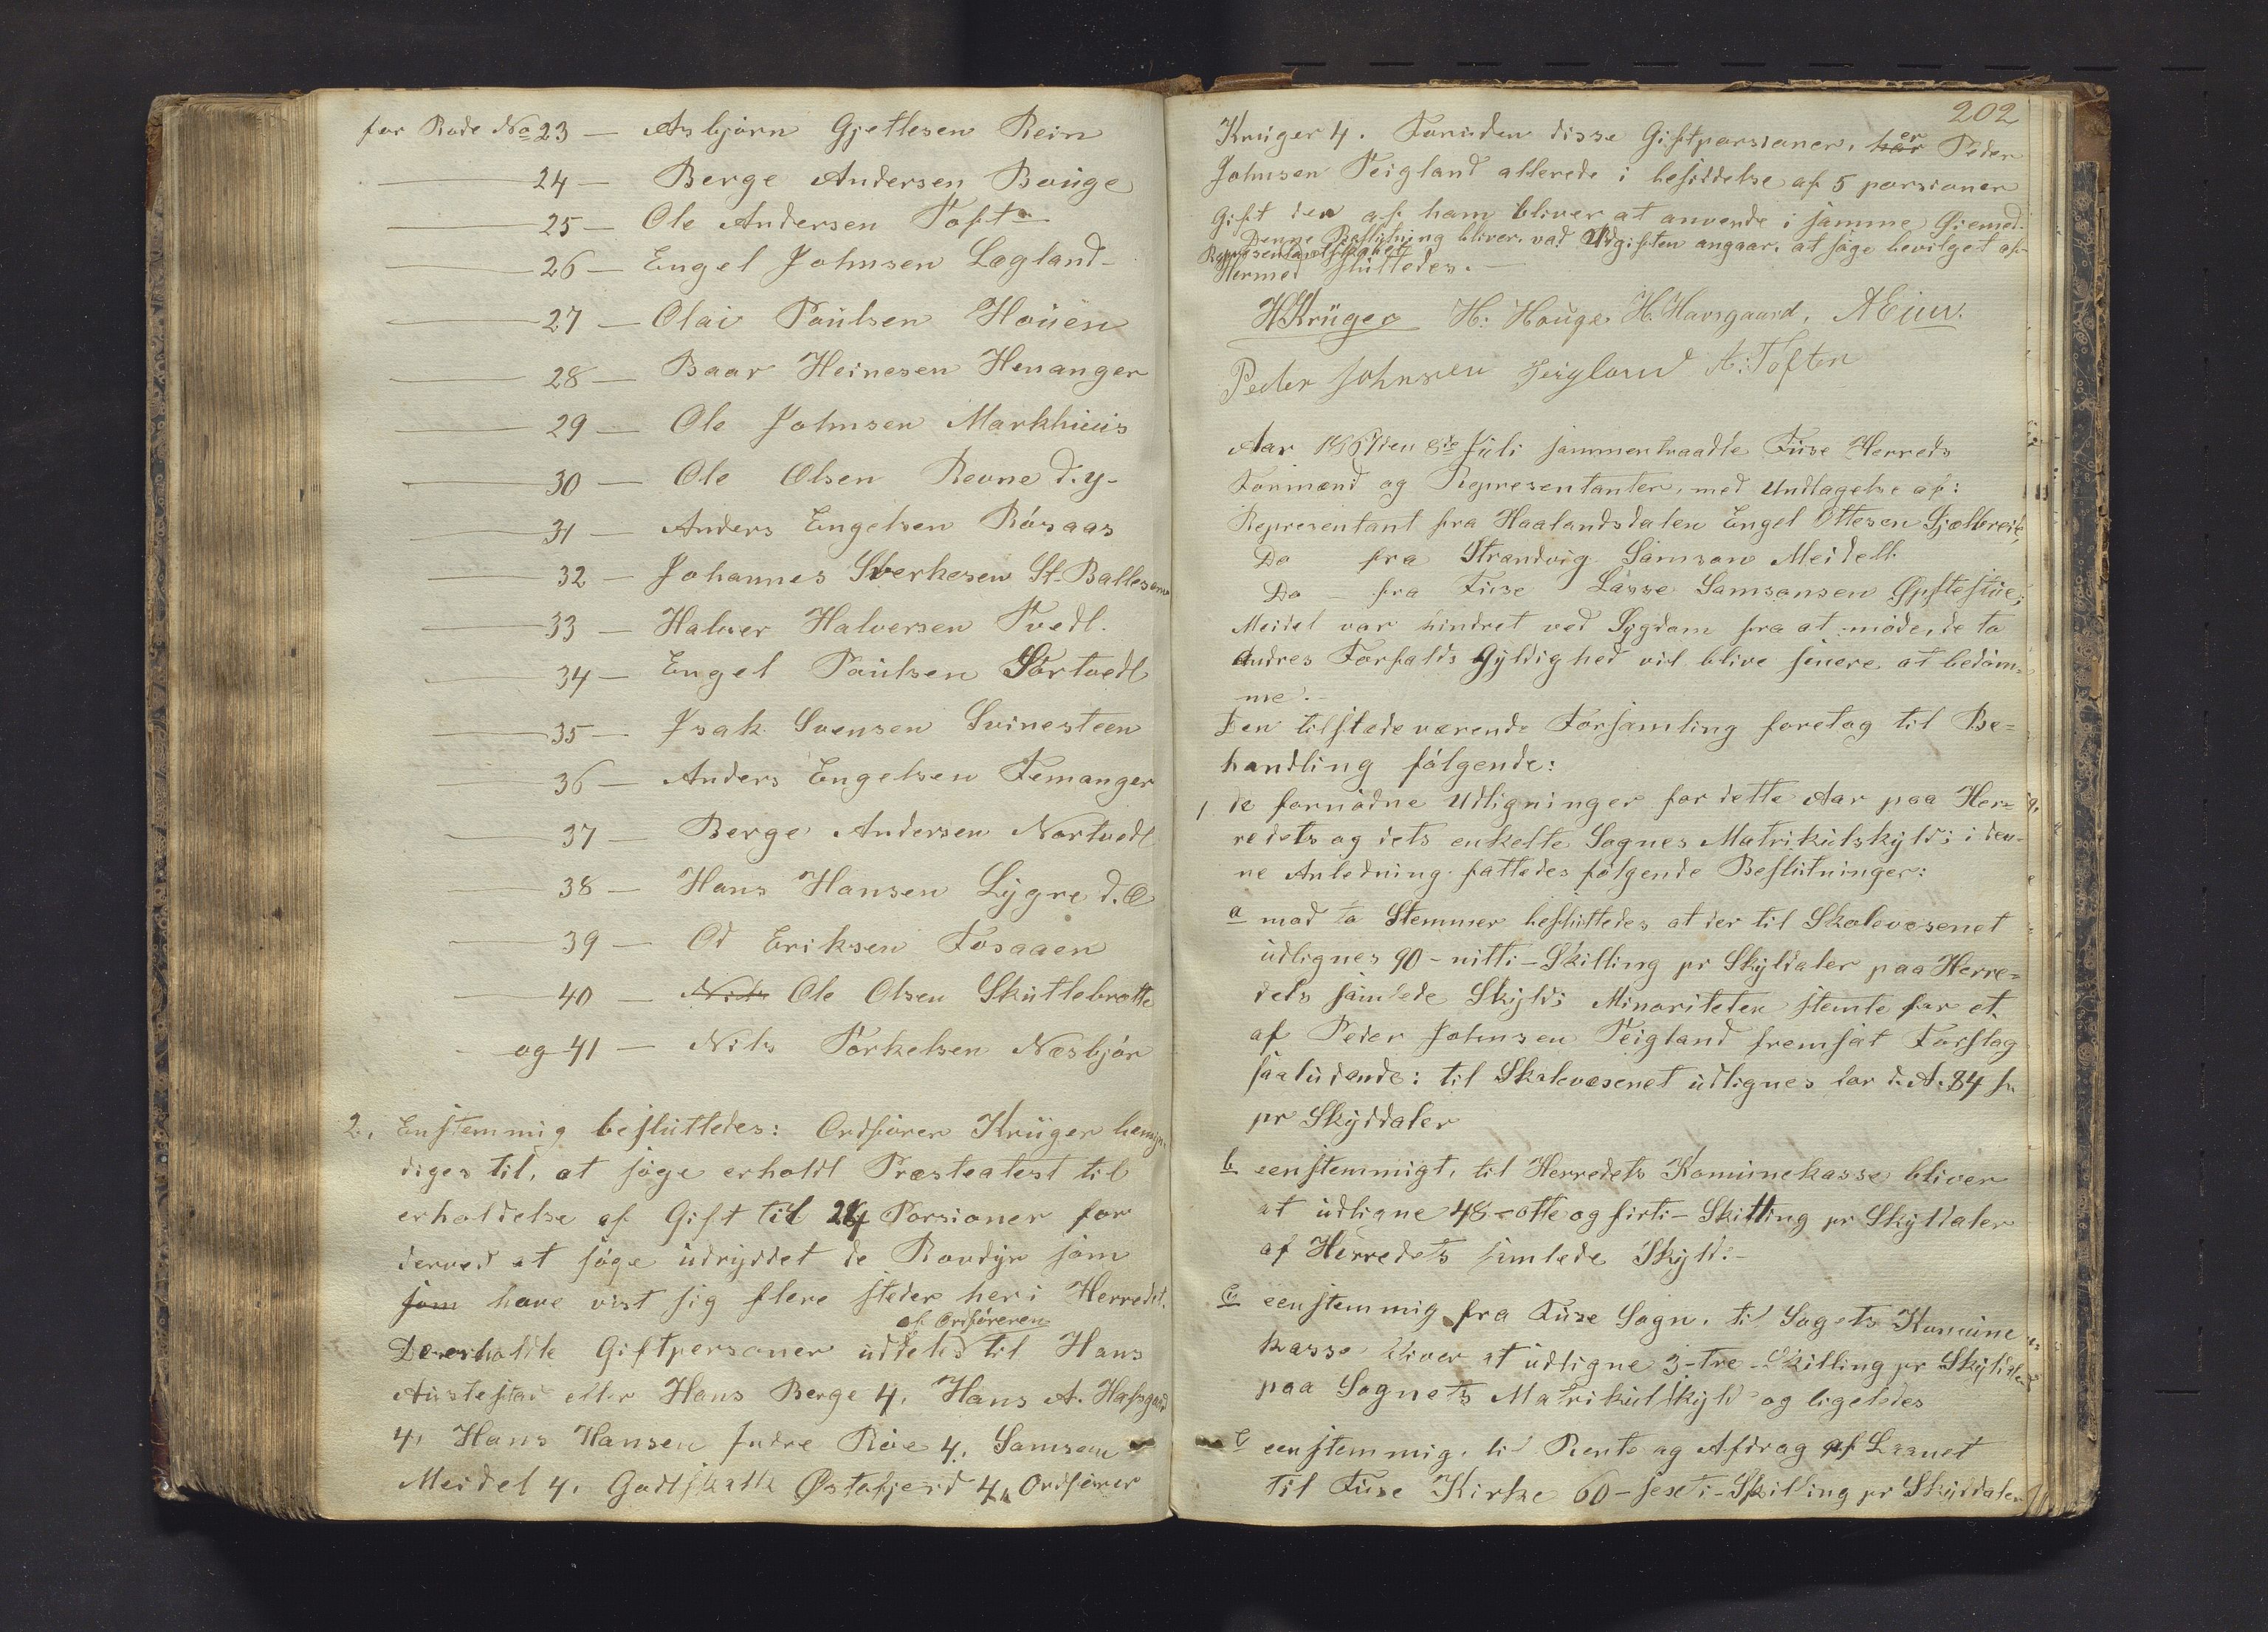 for Rode No 23 — Asbjørn Gjetlesen Rein
— 24 — Berge Andersen Bouge
— 25 — Ole Andersen Tofte
— 26 — Engel Johnsen Lagland
— 27 — Olai Poulsen Houen
— 28 — Baar Heinesen Henanger
— 29 — Ole Johnsen Markhuus
— 30 — Ole Olsen Revne d.y.
— 31 — Anders Engelsen Røsaas
— 32 — Johannes Sverkesen St. Ballesem
— 33 — Halver Halversen Tvedt.
— 34 — Engel Poulsen Sørtvedt
— 35 — Isak Svensen Svinesteen
— 36 — Anders Engelsen Femanger
— 37 — Berge Andersen Nortvedt
— 38 — Hans Hansen Lygre d.Æ
— 39 — Od Eriksen Fosaaen
— 40 — Nils Ole Olsen Skutlebrotte
og 41 — Nils Torkelsen Næsbjør
2. Enstemmig besluttedes: Ordfører Krüger bemyn
diges til, at søge erholdt Præsteatest til
erholdelse af Gift til 24 Porsioner for
derved at søge udryddet de Rovdyr som
som have vist sig flere steder her i Herredet.
af Ordføreren
De erholdte Giftpersoner uddeles til Hans
Austestad eller Hans Berge 4, Hans A. Hafsgaard
4, Hans Hansen Indre Røe 4, Samson
Meidel 4, Godtskalk Østefjerd 4, Ordfører
202
Krüger 4. Foruden disse Giftporsioner, har er Peder
Johnsen Teigland allerede i besiddelse af 5 porsioner
Gift den af ham bliver at anvende i samme Øiemed.
Denne Beslutning bliver, vad Udgiften angaar, at søge bevilget af
Repræsentantskabet
Hermed sluttedes. —
H Krüger H: Houge. H. Havsgaard, A Eium.
Peder Johnsen Teigland A: Toften
Aar 1867 den 8de Juli sammentraadte Fuse Herreds
Formænd og Representanter, med Undtagelse af:
Representant fra Haalandsdalen Engel Ottesen Gjælbreid,
Do fra Strandvig Samson Meidell
Do — fra Fuse Lasse Samsonsen Øpstestue;
Meidel var hindret ved Sygdom fra at møde, de to
Andres Forfalds Gyldighed vil blive senere at bedøm-
me. —
Den tilstedeværende Forsamling foretog til Be=
handling følgende:
1 de fornødne Udligninger for dette Aar paa Her=
redets og dets enkelte Sognes Matrikulskyld; i den-
ne Anledning fattedes følgende Beslutninger:
a mod to Stemmer besluttedes at der til Skolevæsenet
udlignes 90 – nitti – Skilling pr Skyldaler paa Herre=
dets samlede Skyld; Minoriteten stemte for et
af Peder Johnsen Teigland fremsat Forslag
saaludende: til Skolevæsenet udlignes for d. A. 84 s.
pr Skyddaler
b eenstemmigt, til Herredets Komunekasse bliver
at udligne 48 – otte og firti – Skilling pr Skyldaler
af Herredets samlede Skyld: –
c eenstemmig fra Fuse Sogn, til Sogets Komune
kasse bliver at udligne 3 – tre – Skilling pr Skyldaler
paa Sognets Matrikulskyld og ligeledes
eenstemmig, til Rente og Afdrag af Laanet
til Fuse Kirke 60 – sexti – Skilling pr Skyddaler